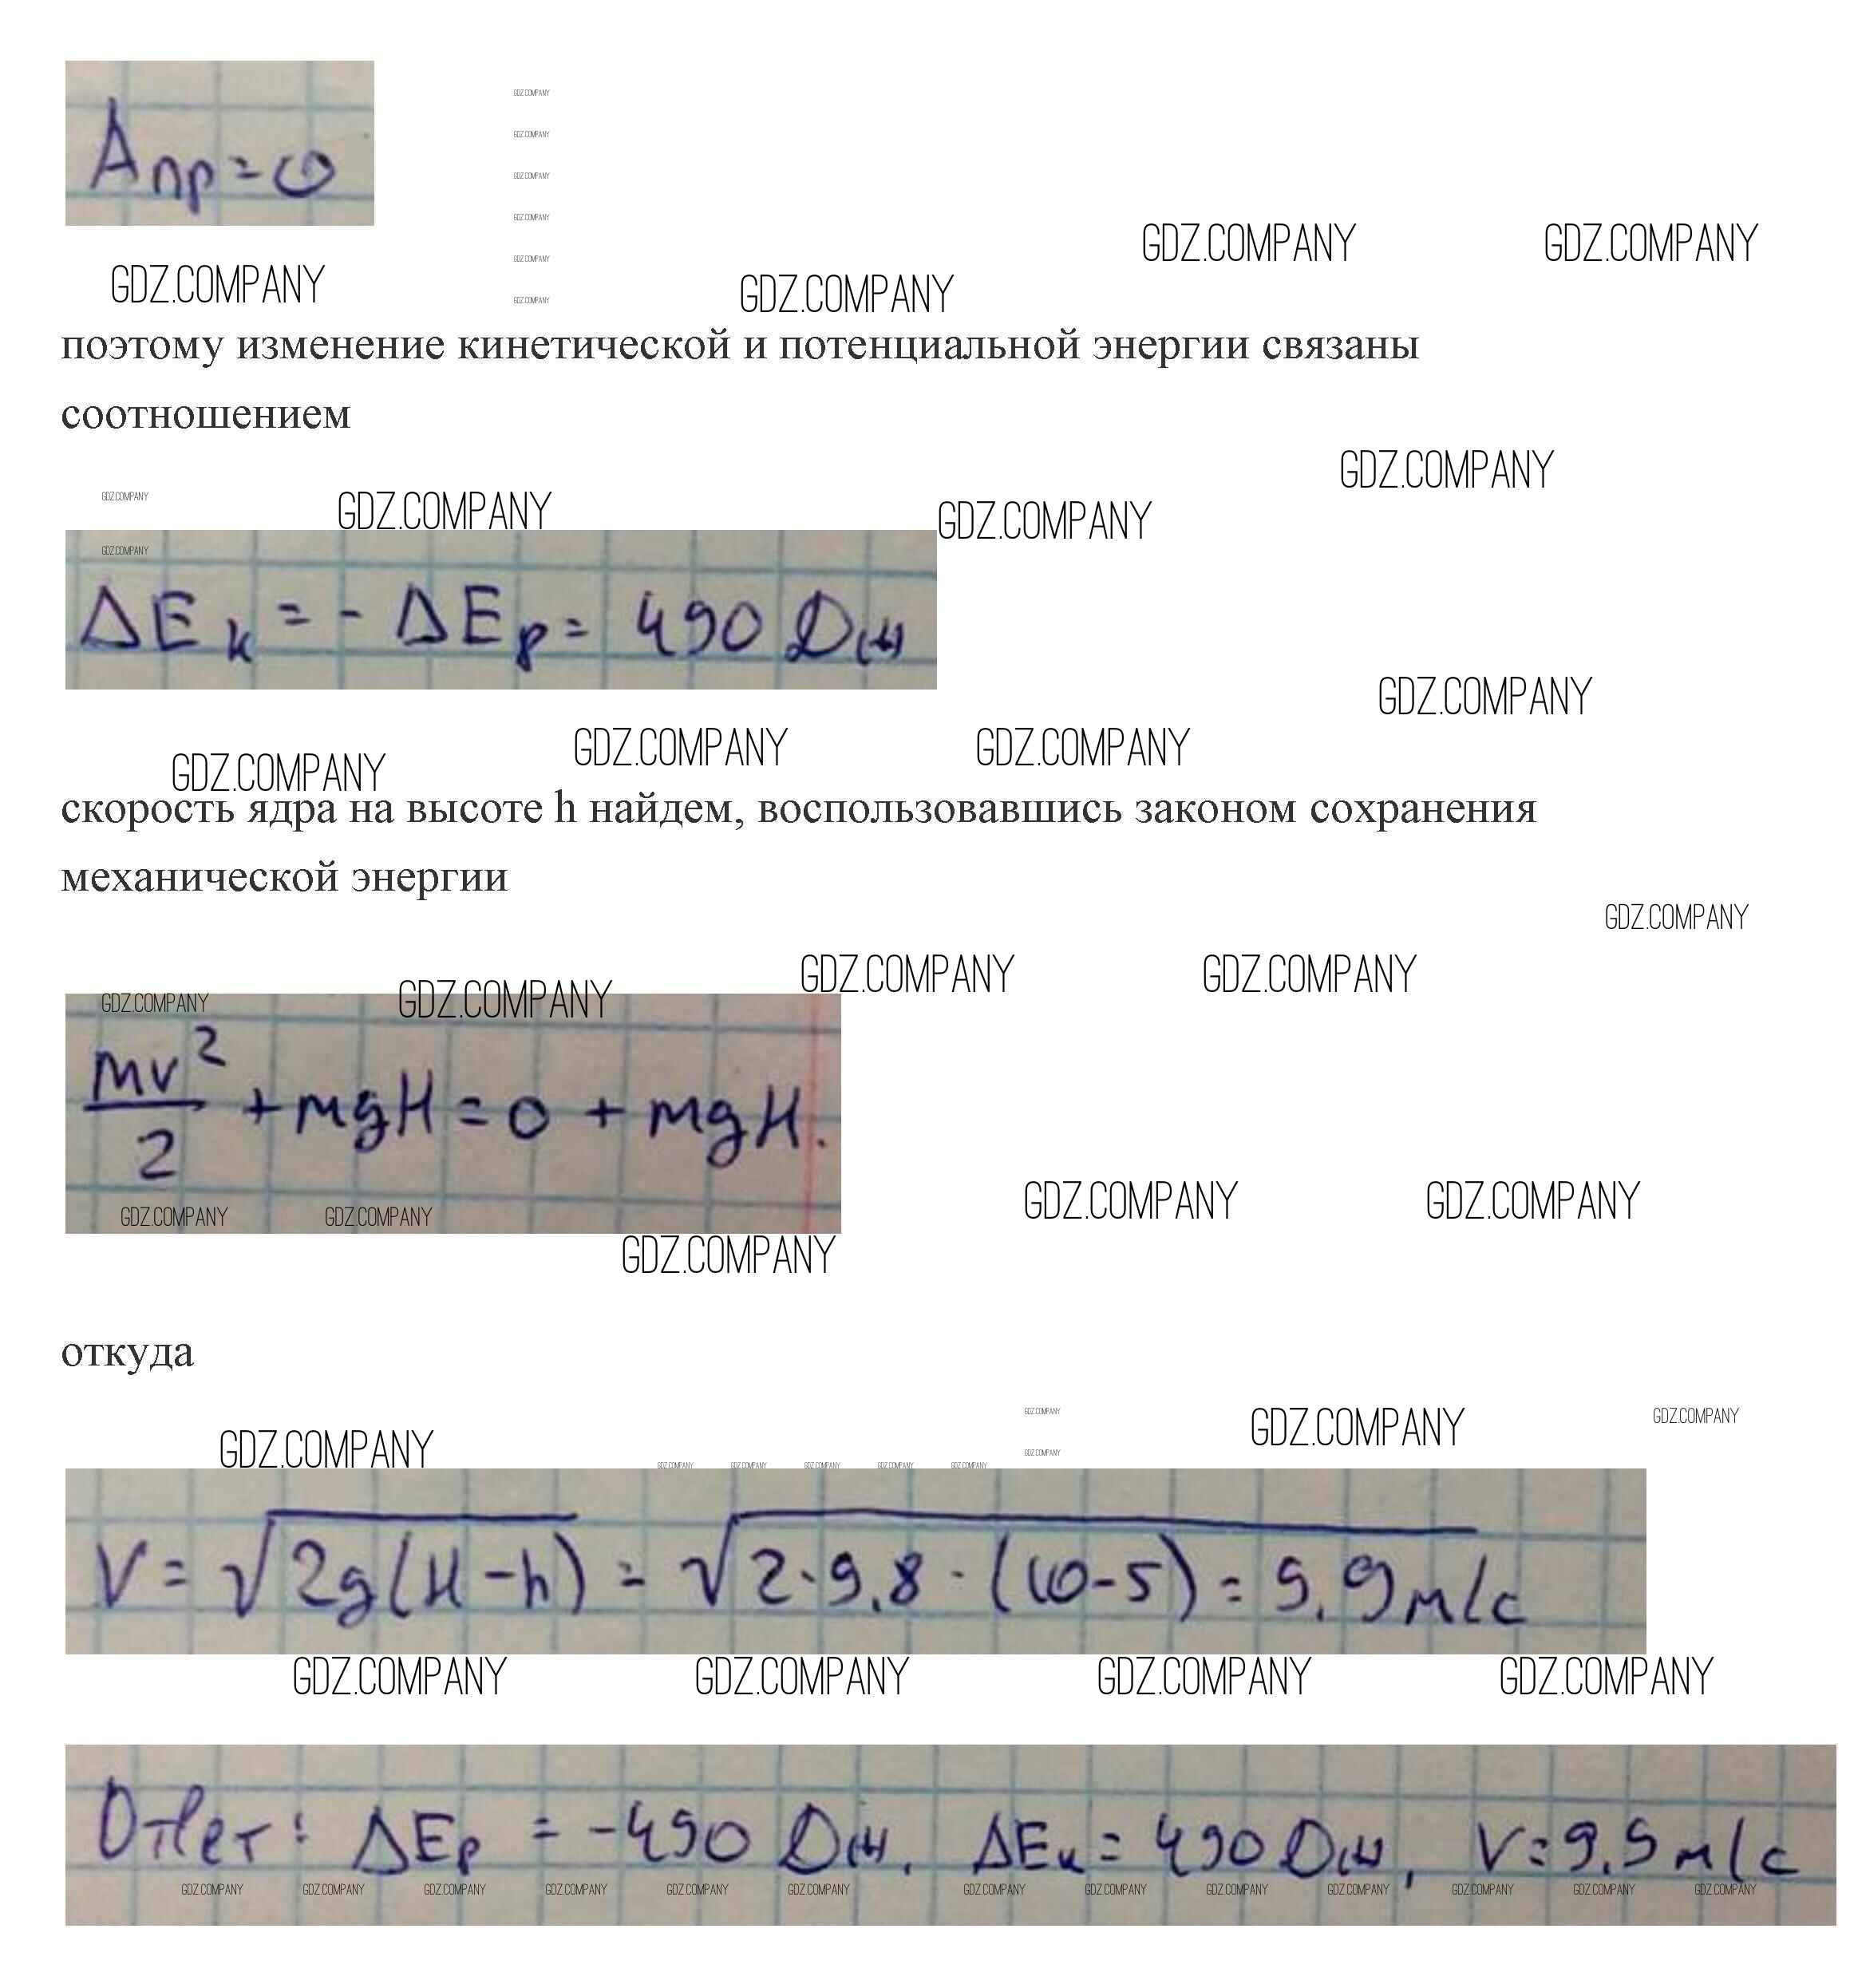 GDZ.COMPANY
GDZ.COMPANY
Aпр=0
GDZ.COMPANY
GDZ.COMPANY
GDZ.COMPANY GDZ.COMPANY
GDZ.COMPANY
GDZ.COMPANY GDZ.COMPANY
GDZ.COMPANY
поэтому изменение кинетической и потенциальной энергии связаны
соотношением
GDZ.COMPANY
GDZ.COMPANY GDZ.COMPANY GDZ.COMPANY
GDZ.COMPANY
ΔEк = - ΔEр = 490 Дж
GDZ.COMPANY
GDZ.COMPANY GDZ.COMPANY
GDZ.COMPANY
скорость ядра на высоте h найдем, воспользовавшись законом сохранения
механической энергии
GDZ.COMPANY
GDZ.COMPANY GDZ.COMPANY
GDZ.COMPANY GDZ.COMPANY
mv²/2 + mgH = 0 + mgH.
GDZ.COMPANY GDZ.COMPANY
GDZ.COMPANY GDZ.COMPANY
GDZ.COMPANY
откуда
GDZ.COMPANY GDZ.COMPANY GDZ.COMPANY
GDZ.COMPANY GDZ.COMPANY
GDZ.COMPANY GDZ.COMPANY GDZ.COMPANY GDZ.COMPANY GDZ.COMPANY
V = √2g(H-h) = √2·9,8·(10-5) = 9,9 м/с
GDZ.COMPANY GDZ.COMPANY GDZ.COMPANY GDZ.COMPANY
Ответ: ΔEр = -490 Дж, ΔEк = 490 Дж, V=9,9 м/с
GDZ.COMPANY GDZ.COMPANY GDZ.COMPANY GDZ.COMPANY GDZ.COMPANY GDZ.COMPANY GDZ.COMPANY GDZ.COMPANY GDZ.COMPANY GDZ.COMPANY GDZ.COMPANY GDZ.COMPANY GDZ.COMPANY